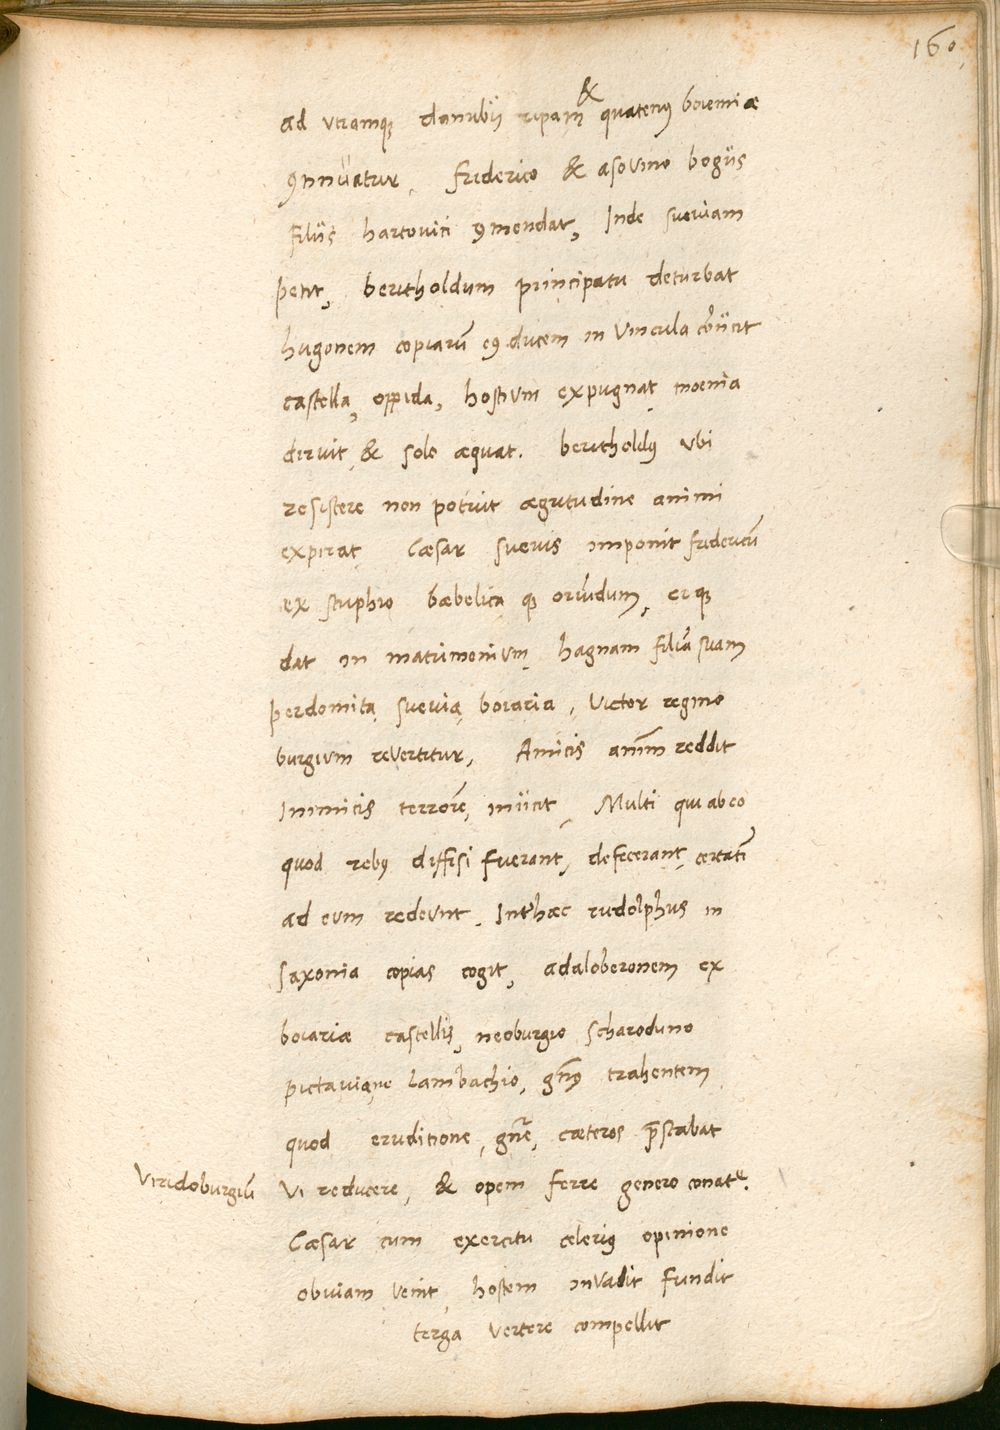 160
ad utramq; danubij ripam & quatenꝰ boiemiæ
ꝯnnuatur, friderico & asovino bogiis
filiis hartovici ꝯmendat, Inde sueviam
petit, bertholdum principatu deturbat
hugonem copiarũ eiꝰ ducem in vincula cõiicit
castella, oppida, hostium expugnat moenia
diruit & solo æquat. bertholdꝰ ubi
resistere non potuit ægritudine animi
expirat, Cæsar suevis imponit fridericũ
ex stuphio bæbelica q; oriũdum, ei q;
dat in matrimonium hagnam filiã suam
perdomita suevia boiaria, victor regino
burgium revertitur, Amicis animũ reddit
Inimicis terrorẽ iniicit, Multi qui ab eo
quod rebꝰ diffisi fuerant, defecerant, certatĩ
ad eum redeunt, Inthæc rudolphus in
saxonia copias cogit, adaloberonem ex
boiariæ castellis, neoburgio scharoduno
pictaviaq;ue lambachio, gñꝰ trahentem
quod eruditione, gñe, cæteros p̃stabat
Viridoburgiũ vi reducere, & opem ferre genero conatꝰ.
Cæsar cum exercitu celeriꝰ opinione
obviam venit, hostem invadit fundit
terga vertere compellit